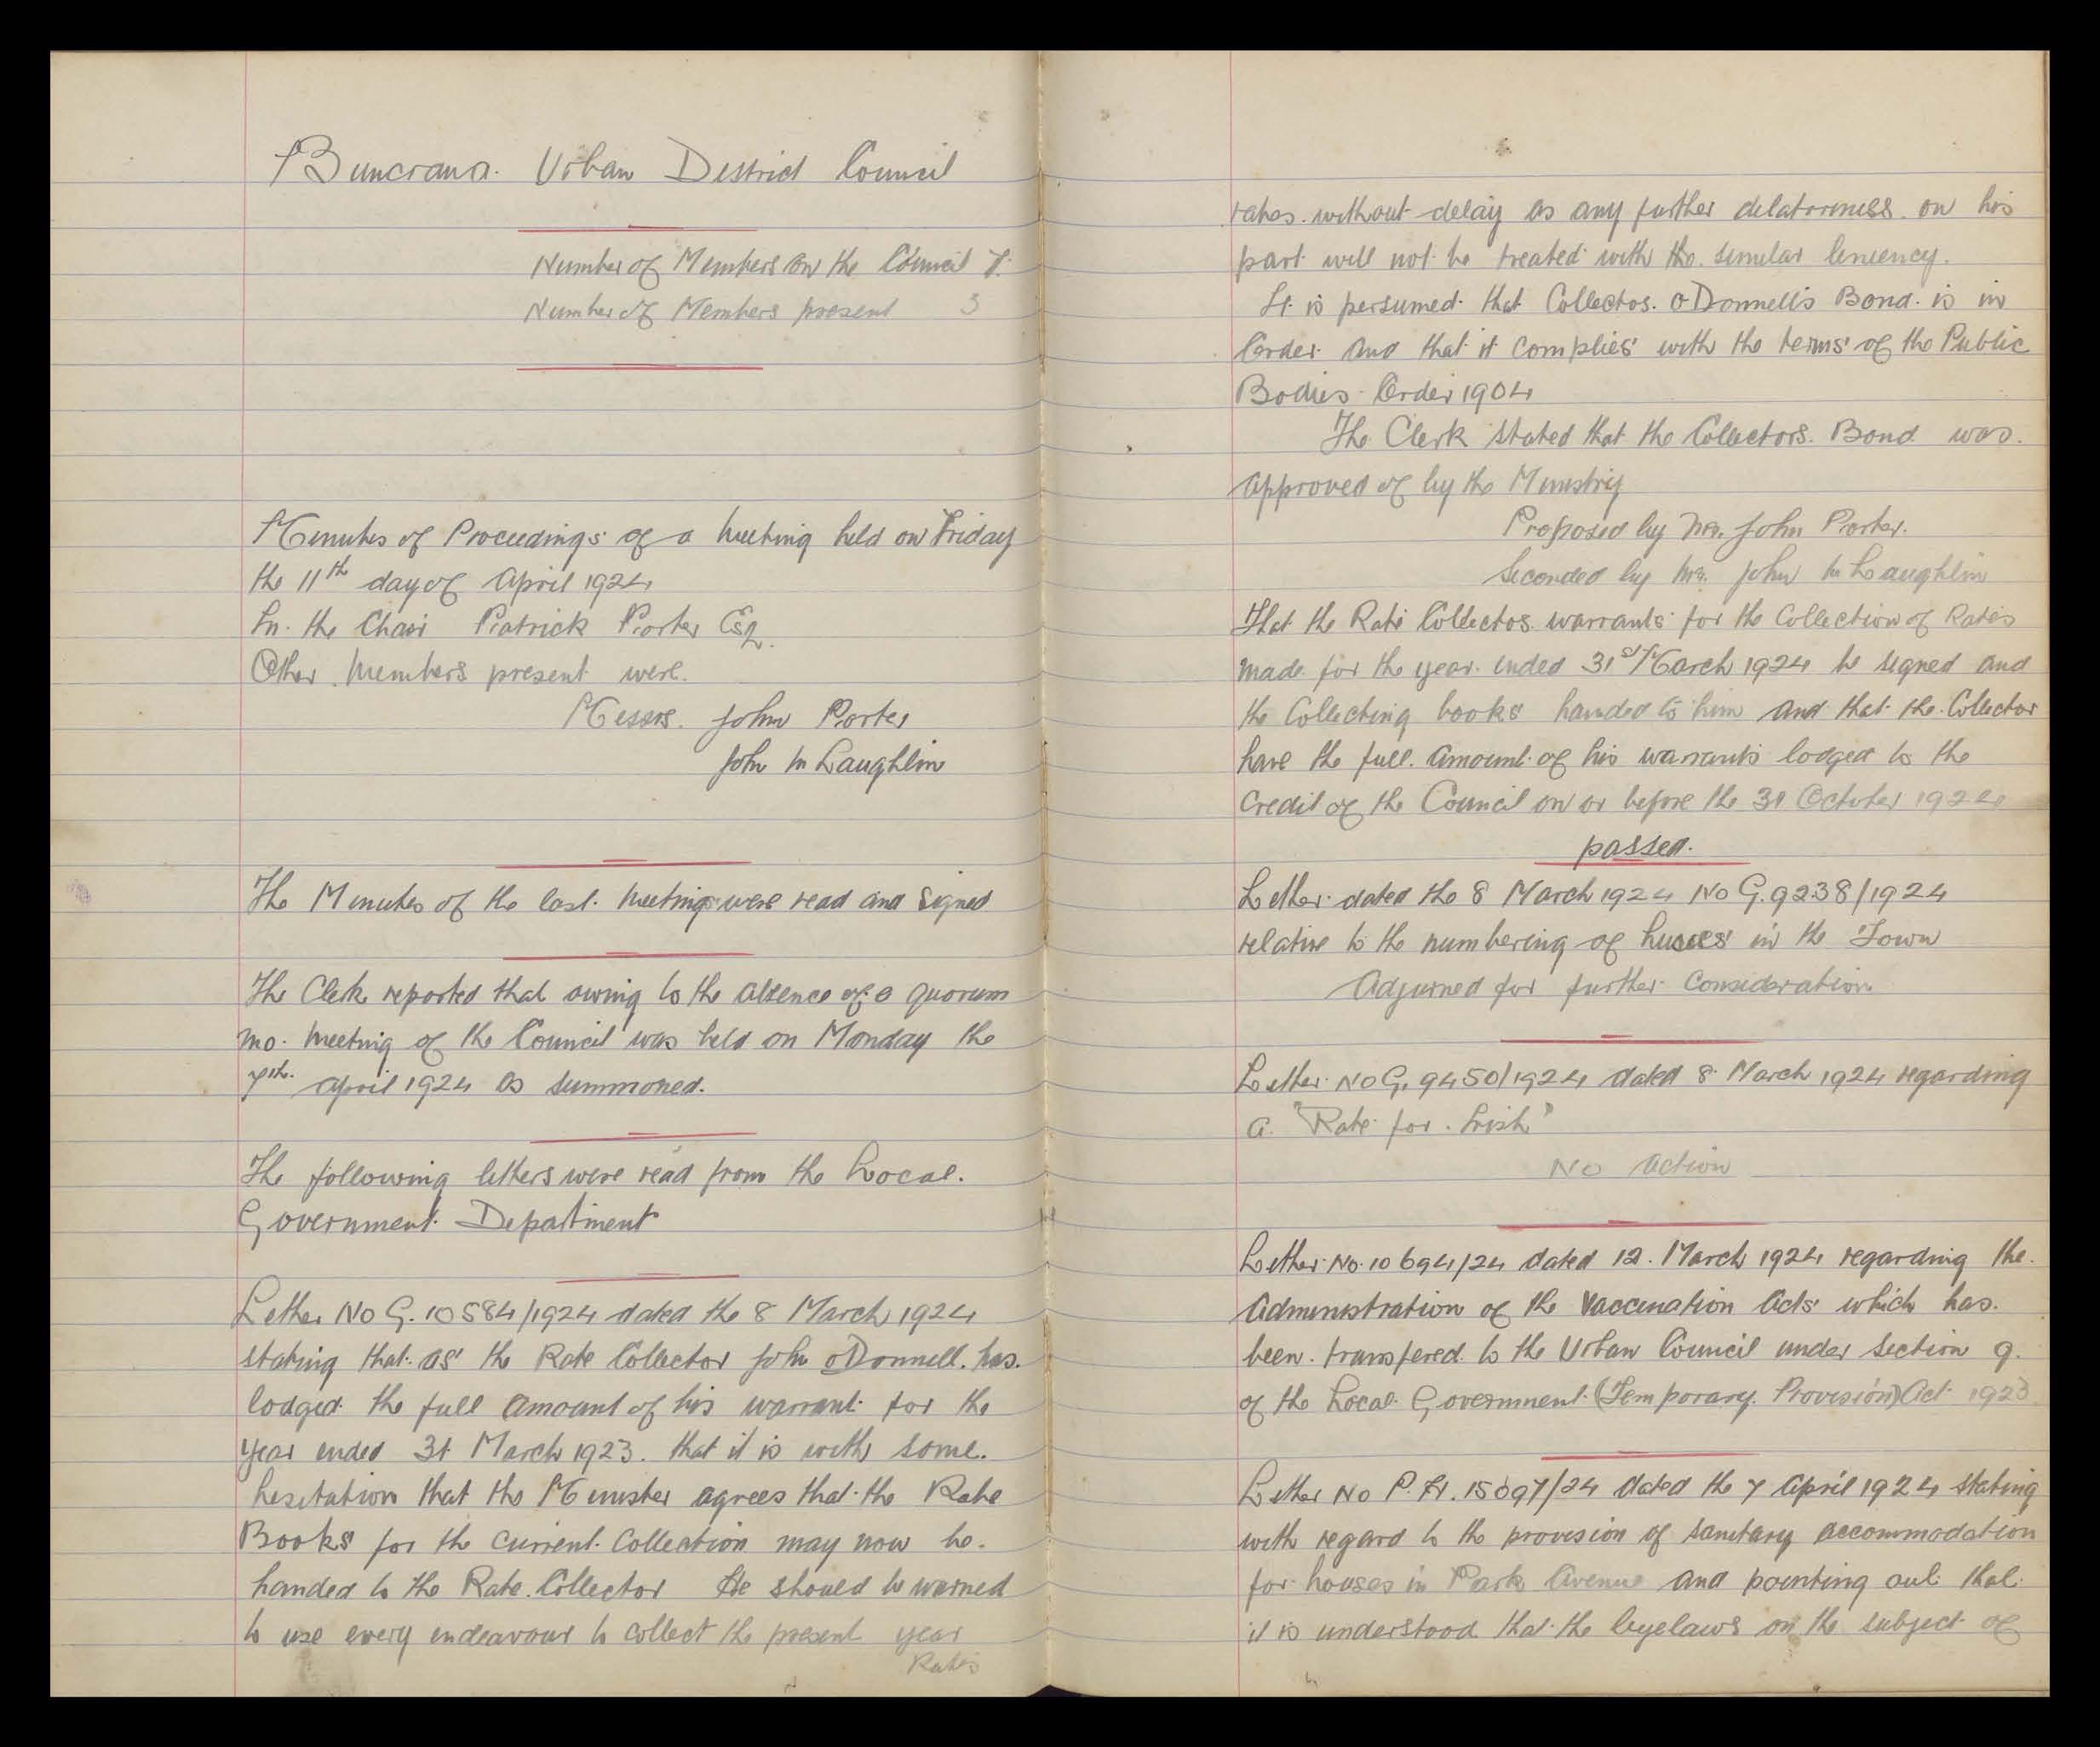 Buncrana. Urban District Council
Number of Members on the Council 7.
Number of Members present 3
Minutes of Proceedings of a meeting held on Friday
the 11th day of April 1924
In the Chair Patrick Porter Esq.
Other Members present were.
Messrs. John Porter
John McLaughlin
The Minutes of the last. meeting were read and signed
The Clerk reported that owing to the absence of a quorum
no. meeting of the Council was held on Monday the
7th. April 1924 as summoned.
The following letters were read from the Local.
Government. Department
Letter No G. 10584/1924 dated the 8 March 1924
stating that. as the Rate Collector John O'Donnell. has.
lodged the full amount of his warrant for the
year ended 31 March 1923. that it is with some.
hesitation that the Minister agrees that the Rate
Books for the current. Collection may now be.
handed to the Rate. Collector He should be warned
to use every endeavour to collect the present year
Rates
rates. without delay as any further delatoriness. on his
part will not be treated with the similar leniency.
It is persumed that Collector. O'Donnell's Bond. is in
Order. and that it complies with the terms of the Public
Bodies Order 1904
The Clerk stated that the Collectors. Bond was.
approved of by the Ministry
Proposed by Mr. John Porter.
Seconded by Mr. John McLaughlin
That the Rate Collectors warrants for the Collection of Rates
made for the year. ended 31st March 1924 be signed and
the Collecting books handed to him and that the Collector
have the full. amount of his warrants lodged to the
Credit of the Council on or before the 31 October 1924
passed.
Letter. dated the 8 March 1924 No G. 9238/1924
relative to the numbering of houses in the Town
Adjurned for further Consideration.
Letter. No G. 9450/1924 dated 8. March 1924 regarding
a. "Rate for. Irish"
No Action
Letter No. 10694/24 dated 12. March 1924 regarding the.
administration of the Vaccination Acts which has.
been. transfered. to the Urban Council under Section 9.
of the Local Government. (Temporary. Provision) Act 1923
Letter No P.H. 15097/24 dated the 7 April 1924 stating
with regard to the provision of sanitary accommodation
for houses in Park Avenue and pointing out. that.
it is understood that. the byelaws on the subject of